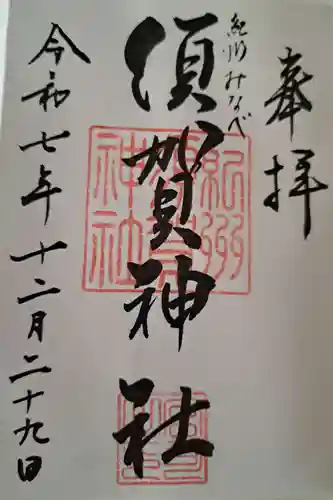 奉拝
紀州みなべ
須賀神社
令和七年十二月二十九日
紀州
須賀
神社